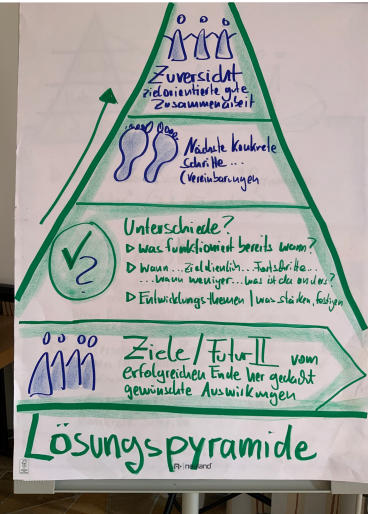 Zuversicht
zielorientierte gute
Zusammenarbeit
Nächste konkrete
Schritte...
(Vereinbarungen
Unterschiede?
▷ Was funktioniert bereits wann?
▷ Wann... zieldienlich... Fortschritte...
...wann weniger... was ist da anders?
▷ Entwicklungsthemen / was stärken, festigen
Ziele / Futur II vom
erfolgreichen Ende her gedacht
gewünschte Auswirkungen
Lösungspyramide